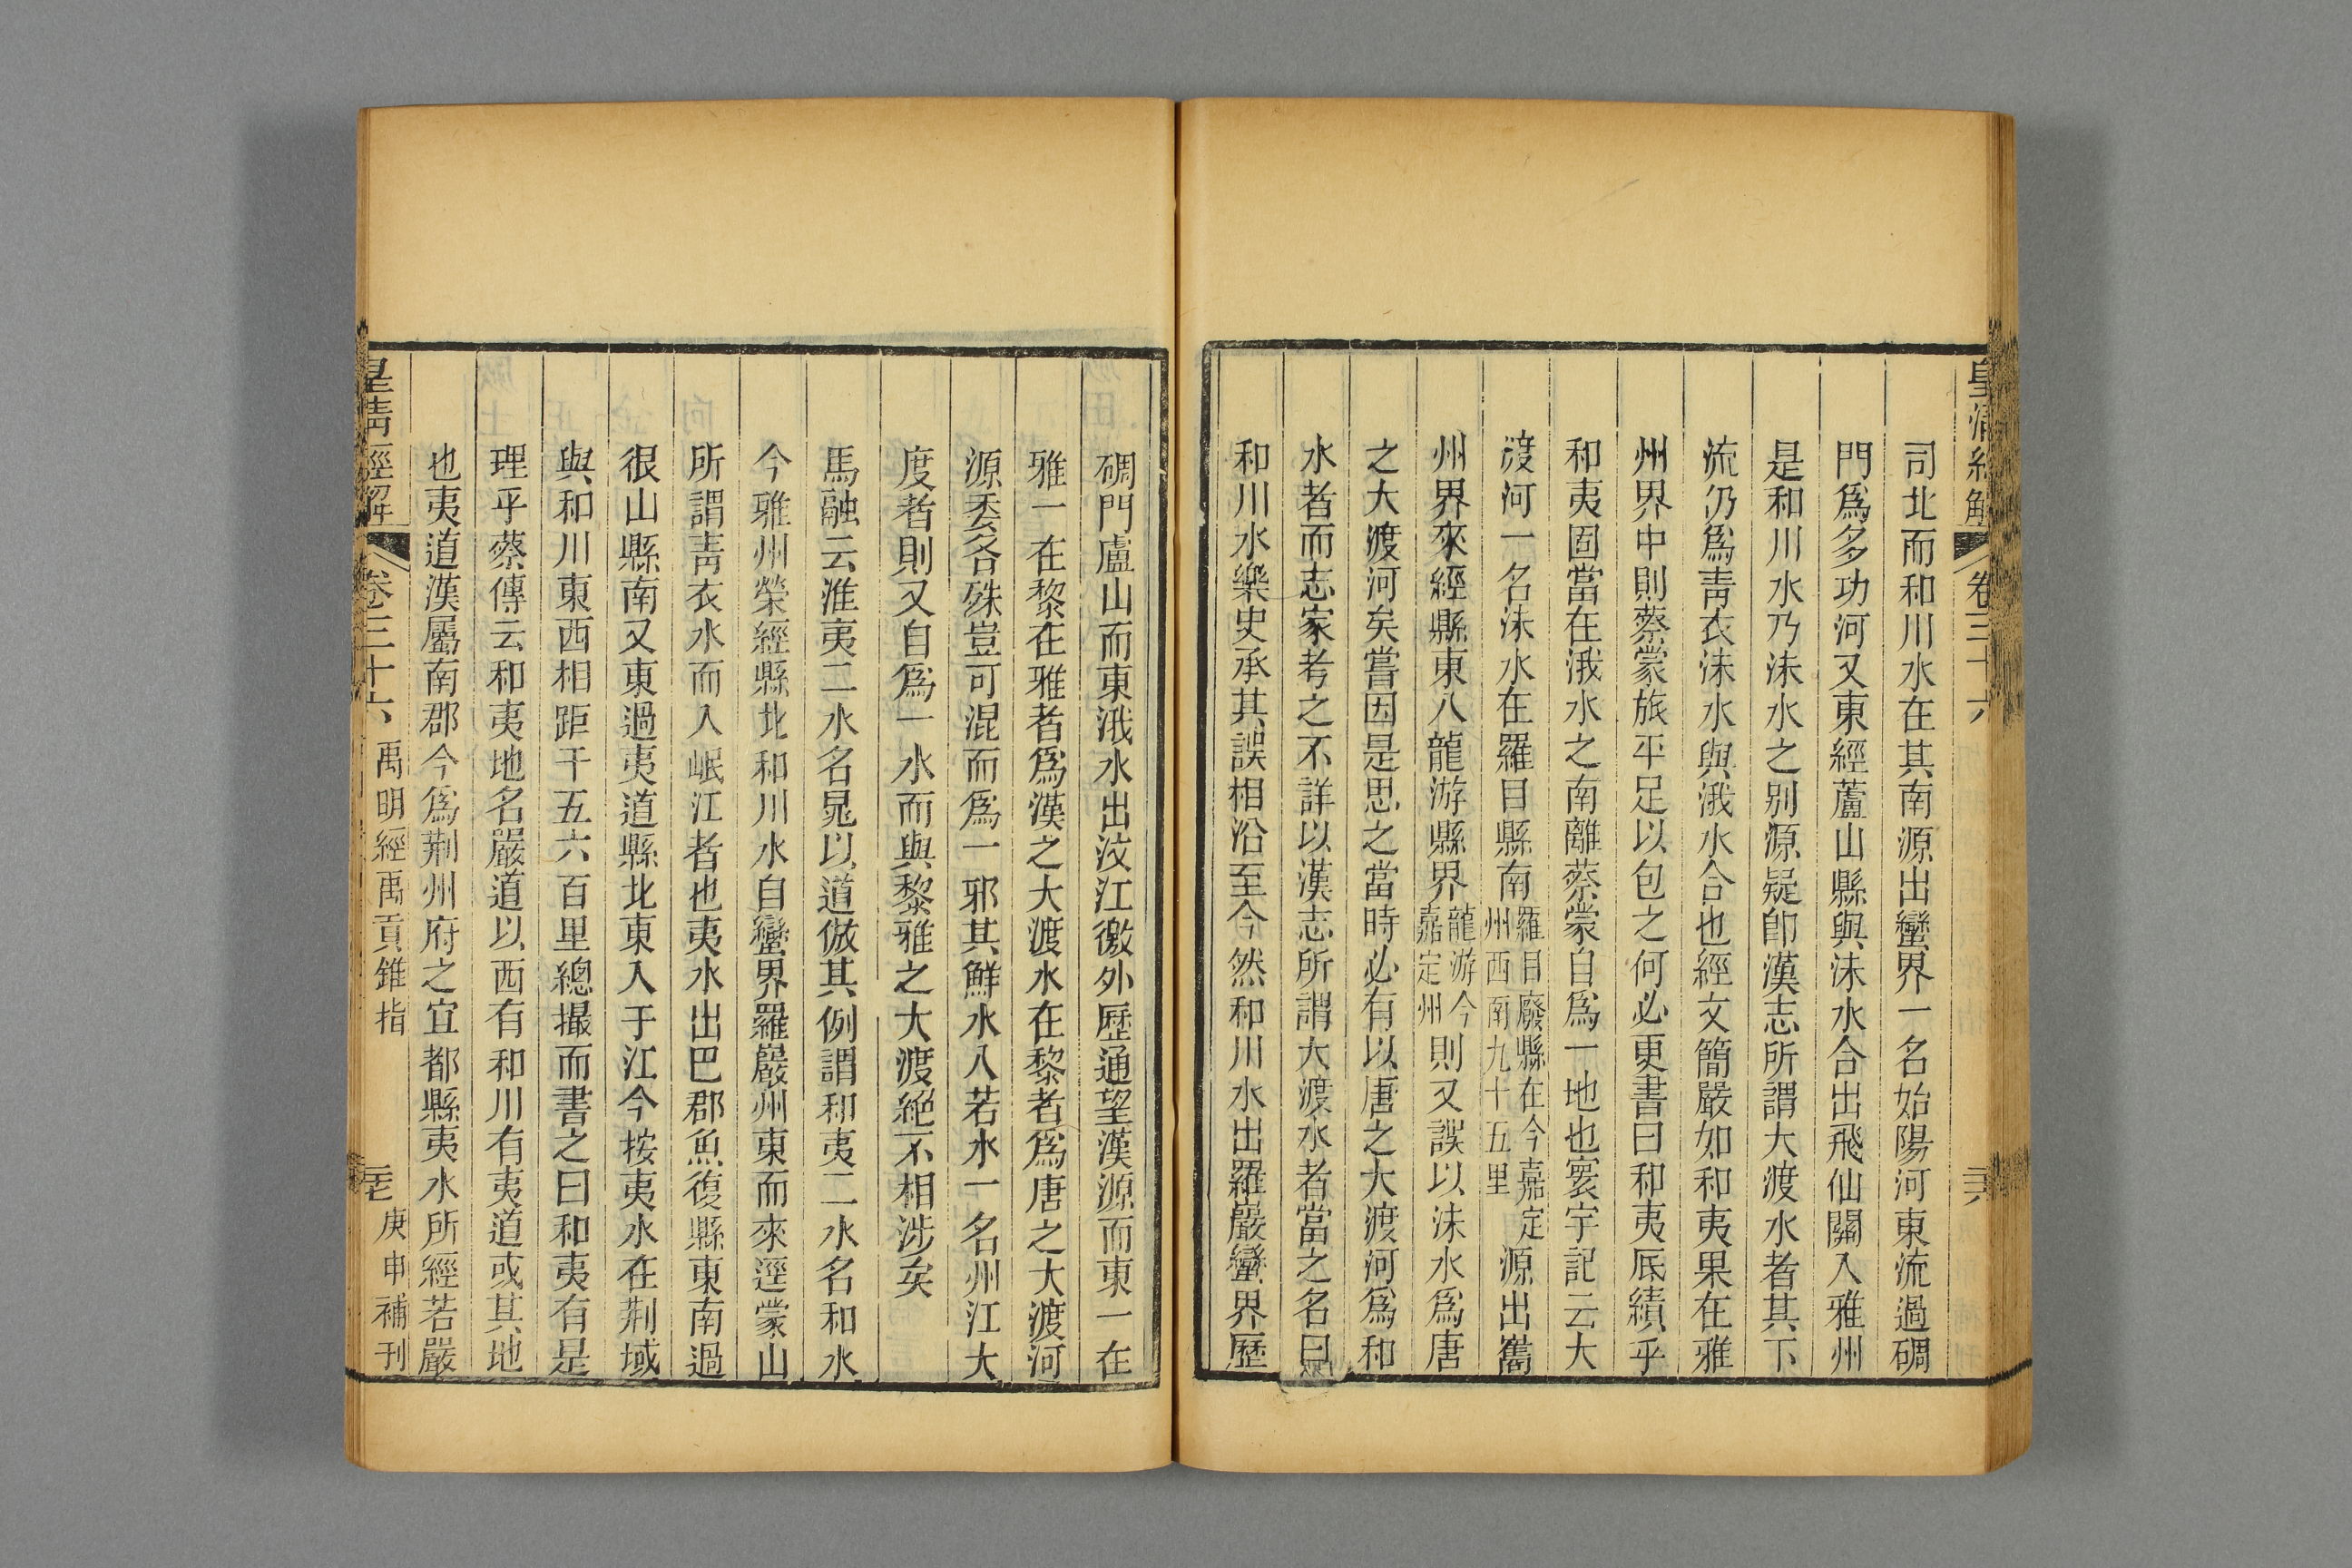 皇清經解 卷三十六
司北而和川水在其南源出蠻界一名始陽河東流過碉
門爲多功河又東經蘆山縣與沬水合出飛仙關入雅州
是和川水乃沬水之别源疑卽漢志所謂大渡水者其下
流仍爲靑衣沬水與涐水合也經文簡嚴如和夷果在雅
州界中則蔡蒙旅平足以包之何必更書曰和夷厎績乎
和夷固當在涐水之南離蔡蒙自爲一地也寰宇記云大
渡河一名沬水在羅目縣南羅目廢縣在今嘉定州西南九十五里源出巂
州界來經縣東入龍游縣界龍游今嘉定州則又誤以沬水爲唐
之大渡河矣嘗因是思之當時必有以唐之大渡河爲和
水者而志家考之不詳以漢志所謂大渡水者當之名曰
和川水樂史承其誤相沿至今然和川水出羅巖蠻界歷
碉門盧山而東涐水出汶江徼外歷通望漢源而東一在
雅一在黎在雅者爲漢之大渡水在黎者爲唐之大渡河
源委各殊豈可混而爲一邪其鮮水入若水一名州江大
度者則又自爲一水而與黎雅之大渡絶不相涉矣
馬融云淮夷二水名晁以道倣其例謂和夷二水名和水
今雅州榮經縣北和川水自蠻界羅巖州東而來逕蒙山
所謂靑衣水而入岷江者也夷水出巴郡魚復縣東南過
佷山縣南又東過夷道縣北東入于江今按夷水在荆域
與和川東西相距千五六百里總撮而書之曰和夷有是
理乎蔡傳云和夷地名嚴道以西有和川有夷道或其地
也夷道漢屬南郡今爲荆州府之宜都縣夷水所經若嚴
皇淸經解 卷三十六 禹明經禹貢錐指 毛 庚申補刊